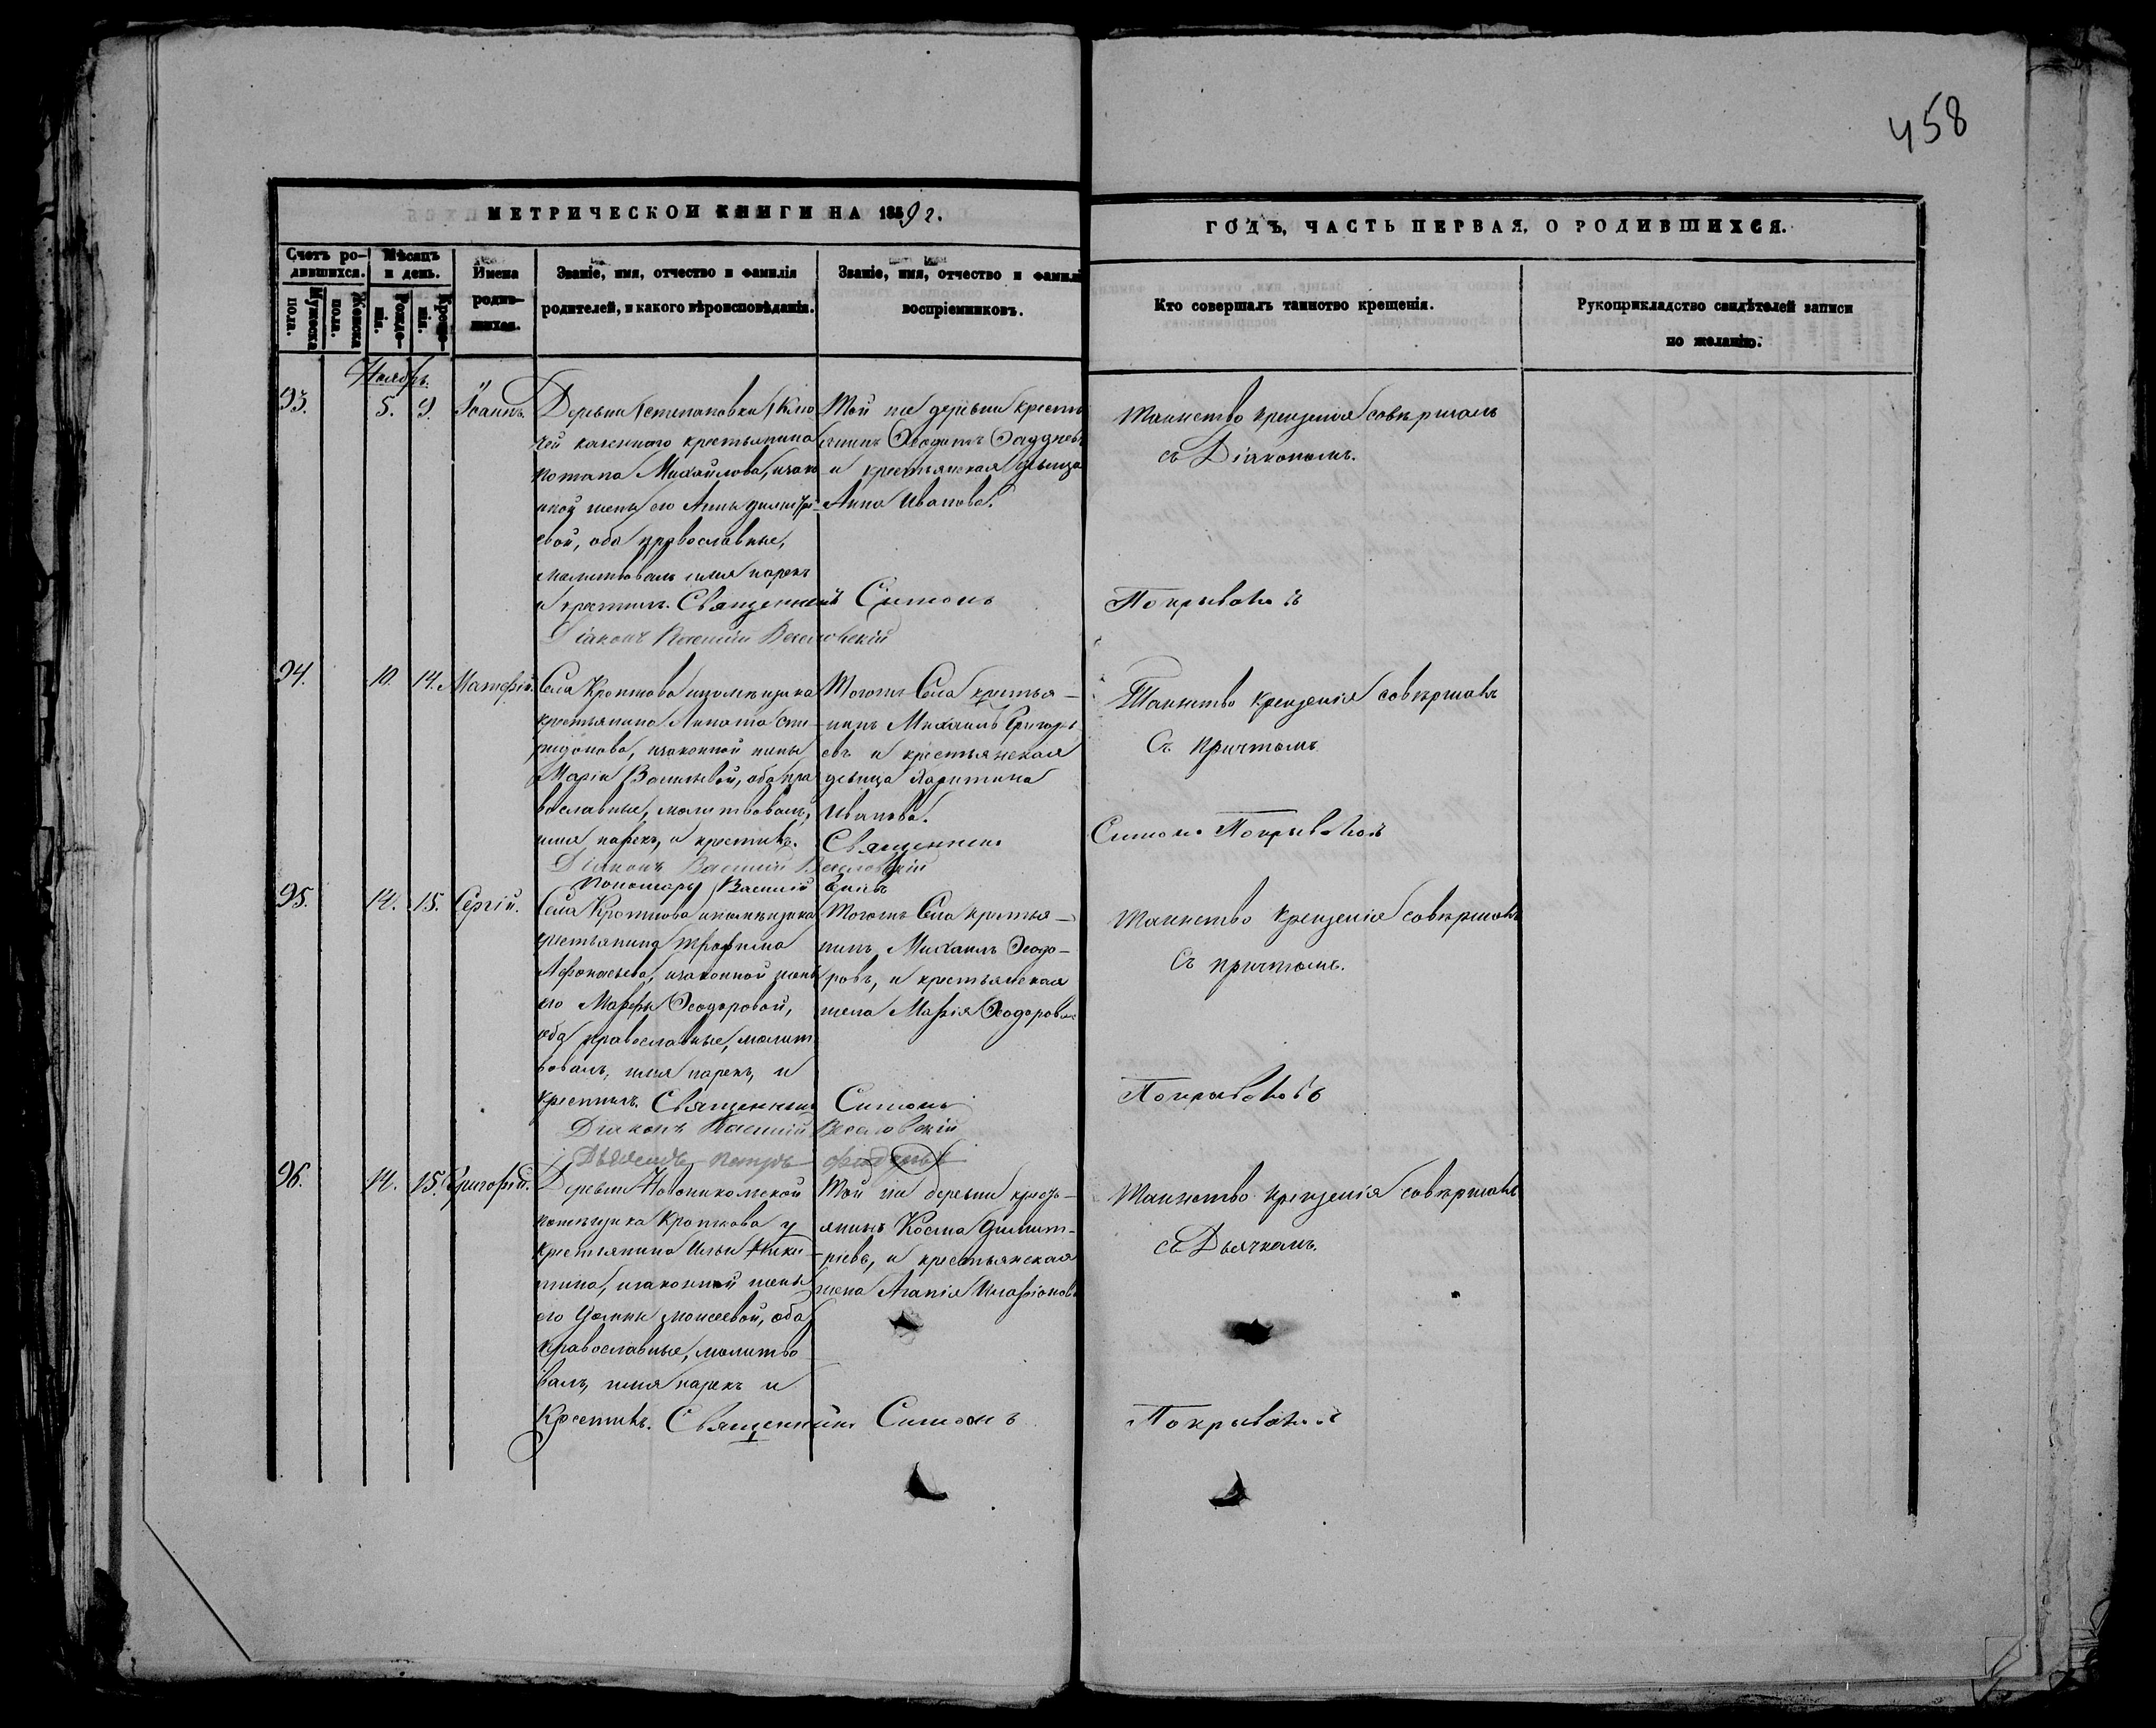 458
МЕТРИЧЕСКОЙ КНИГИ НА 1892.
ГОДЪ, ЧАСТЬ ПЕРВАЯ, О РОДИВШИХСЯ.
Счетъ ро-
дившихся.
Мужеска
полa.
Женска
пола.
Мѣсяцъ
и день.
Рожде-
нія.
Креще-
нія.
Имена
родив-
шихся.
Званіе, имя, отчество и фамилія
родителей, и какого вѣроисповѣданія.
Званіе, имя, отчество и фамилі
воспріемниковъ.
Кто совершалъ таинство крещенія.
Рукоприкладство свидѣтелей записи
по желанію.
Ноябрь.
93.
5.
9.
Іоаннъ.
Деревни Степановки Клю
чей казеннаго крестьянина
Потапа Михайлова, изакон
ной жены его Анны Димитрі-
евой, оба православные,
молитвовалъ имя нарекъ
и крестилъ. Священникъ Симонъ
Діаконъ Василій Веселовскій
Той же деревни кресть
янинъ Ѳеодотъ Ѳаддѣевъ
и крестьянская дѣвица
Анна Иванова.
Таинство крещенія совѣршалъ
съ Діакономъ.
Покрываловъ
94.
10.
14.
Матѳей.
Села Кроткова помѣщика
крестьянина Липата Спи-
ридонова, изаконной жены
Маріи Васильевой, оба пра
вославные, молитвовалъ,
имя нарекъ, и крестилъ.
Діаконъ Василій Веселовскій
Пономарь Василій
Тогожъ Села крестья-
нинъ Михаилъ Григорь
евъ и крестьянская
дѣвица Харитина
Иванова.
Священникъ
Таинство крещенія совѣршалъ
Съ Причтомъ
Симонъ Покрываловъ
95.
14.
15.
Сергій.
Села Кроткова помѣщика
крестьянина Трофима
Афонасьева, изаконной жены
его Марѳы Ѳеодоровой,
оба православные, молит
вовалъ, имя нарекъ, и
крестилъ. Священникъ Симонъ
Діаконъ Василій Веселовскій
Дьячекъ Петръ
Тогожъ Села крестья-
нинъ Михаилъ Ѳеодо-
ровъ, и крестьянская
жена Марія Ѳеодорова
Таинство крещенія совѣршалъ
Съ причтомъ.
Покрываловъ
96.
14.
15.
Григорій.
Деревни Новоникольской
помѣщика Кроткова у
крестьянина Ильи Ники-
тина, изаконной жены
его Домны Моисеевой, оба
православные, молитво
валъ, имя нарекъ и
Крестилъ. Священникъ Симонъ
Той же деревни кресть-
янинъ Косма Димит-
ріевъ, и крестьянская
жена Агапія Иларіонов
Таинство крещенія совѣршалъ
съ Дьячкомъ.
Покрываловъ